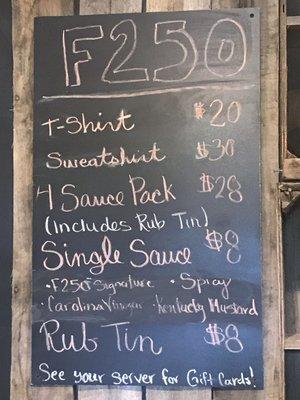 F250
T-Shirt $20
Sweatshirt $30
4 Sauce Pack $28
(Includes Rub Tin)
Single Sauce $8
· F250 Signature · Spicy
· Carolina Vinegar · Kentucky Mustard
Rub Tin $8
See your server for Gift Cards!